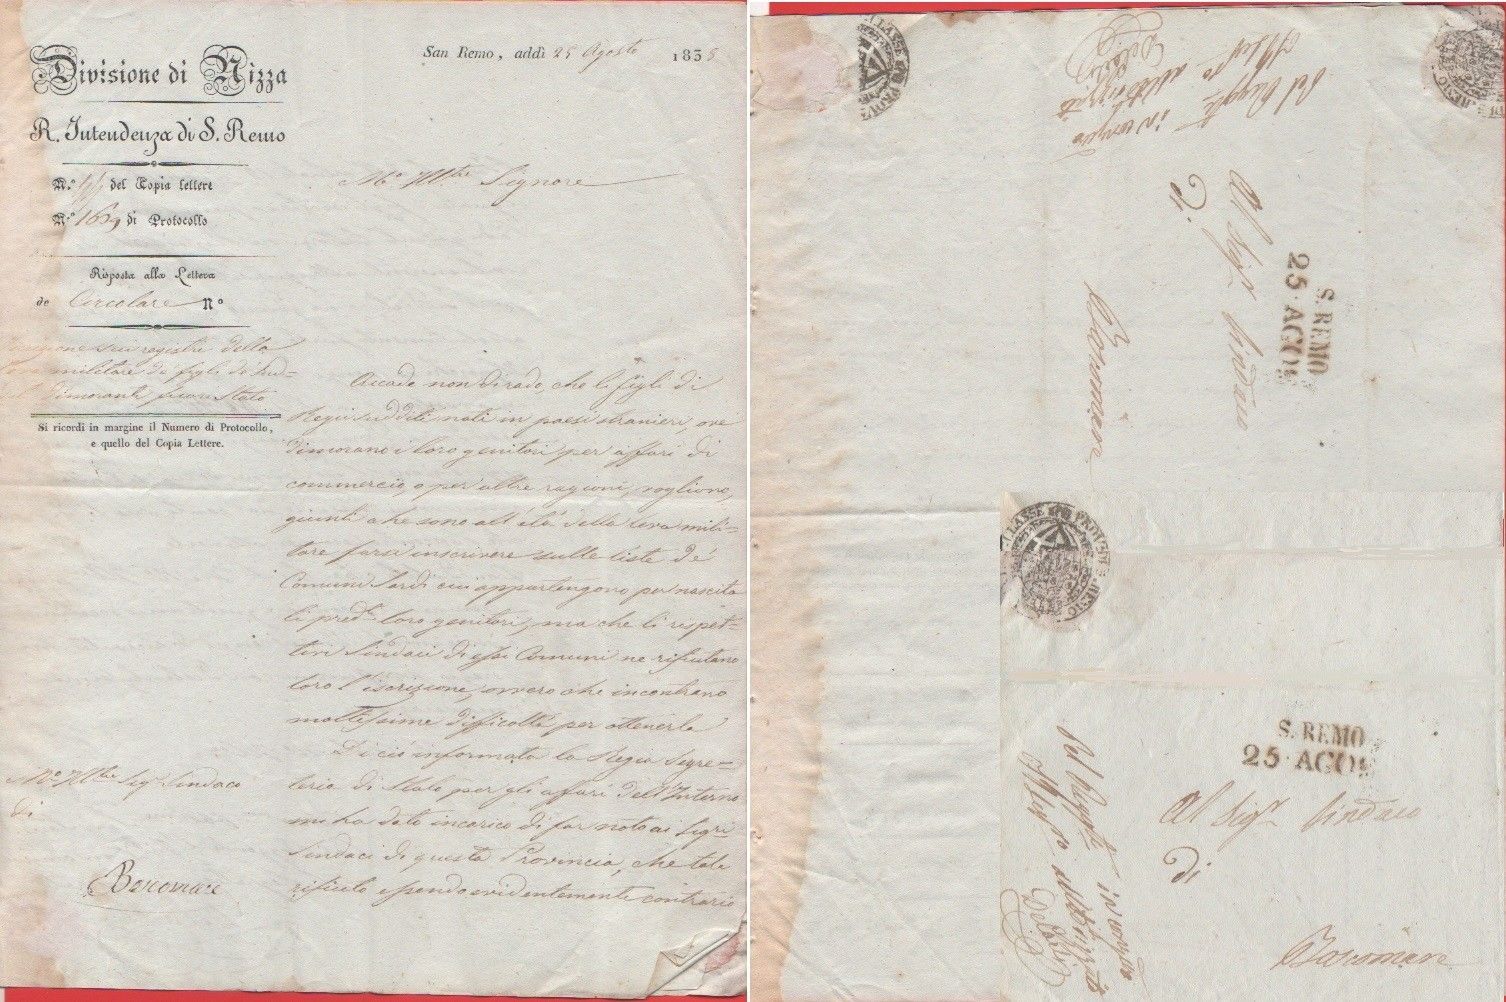 Divisione di Nizza
R. Intendenza di S. Remo
N.o del Copia Lettere
N.o di Protocollo
Risposta alla Lettera
de Circolare N.o
sui registri della
militare de figli de Sud=
dimoranti fuori Stato
Si ricordi in margine il Numero di Protocollo,
e quello del Copia Lettere.
San Remo, addì 25 Agosto 1838
M.o Ill.tre Signore
Accade non di rado, che li figli di
Regi sudditi nati in paesi stranieri, ove
dimorano i loro genitori per affari di
commercio, o per altre ragioni, vogliono,
giunti che sono all'età della leva mili=
tare farsi inscrivere sulle liste de'
Comuni Sardi cui appartengono per nascita
li pred.i loro genitori, ma che li rispet=
tivi Sindaci di essi Comuni ne rifiutano
loro l'iscrizione, ovvero che incontrano
moltissime difficoltà per ottenerla
Di ciò informata la Regia Segre=
teria di Stato per gli affari dell'Interno
mi ha dato incarico di far noto ai Sig.ri
Sindaci di questa Provincia, che tale
rifiuto essendo evidentemente contrario
M.o Ill.tre Sig.r Sindaco
di
Boscomare
S. REMO
25 · AGO
Al Sig.r Sindaco
di
Boscomare
S. REMO
25 · AGO
Al Sig.r Sindaco
di
Boscomare